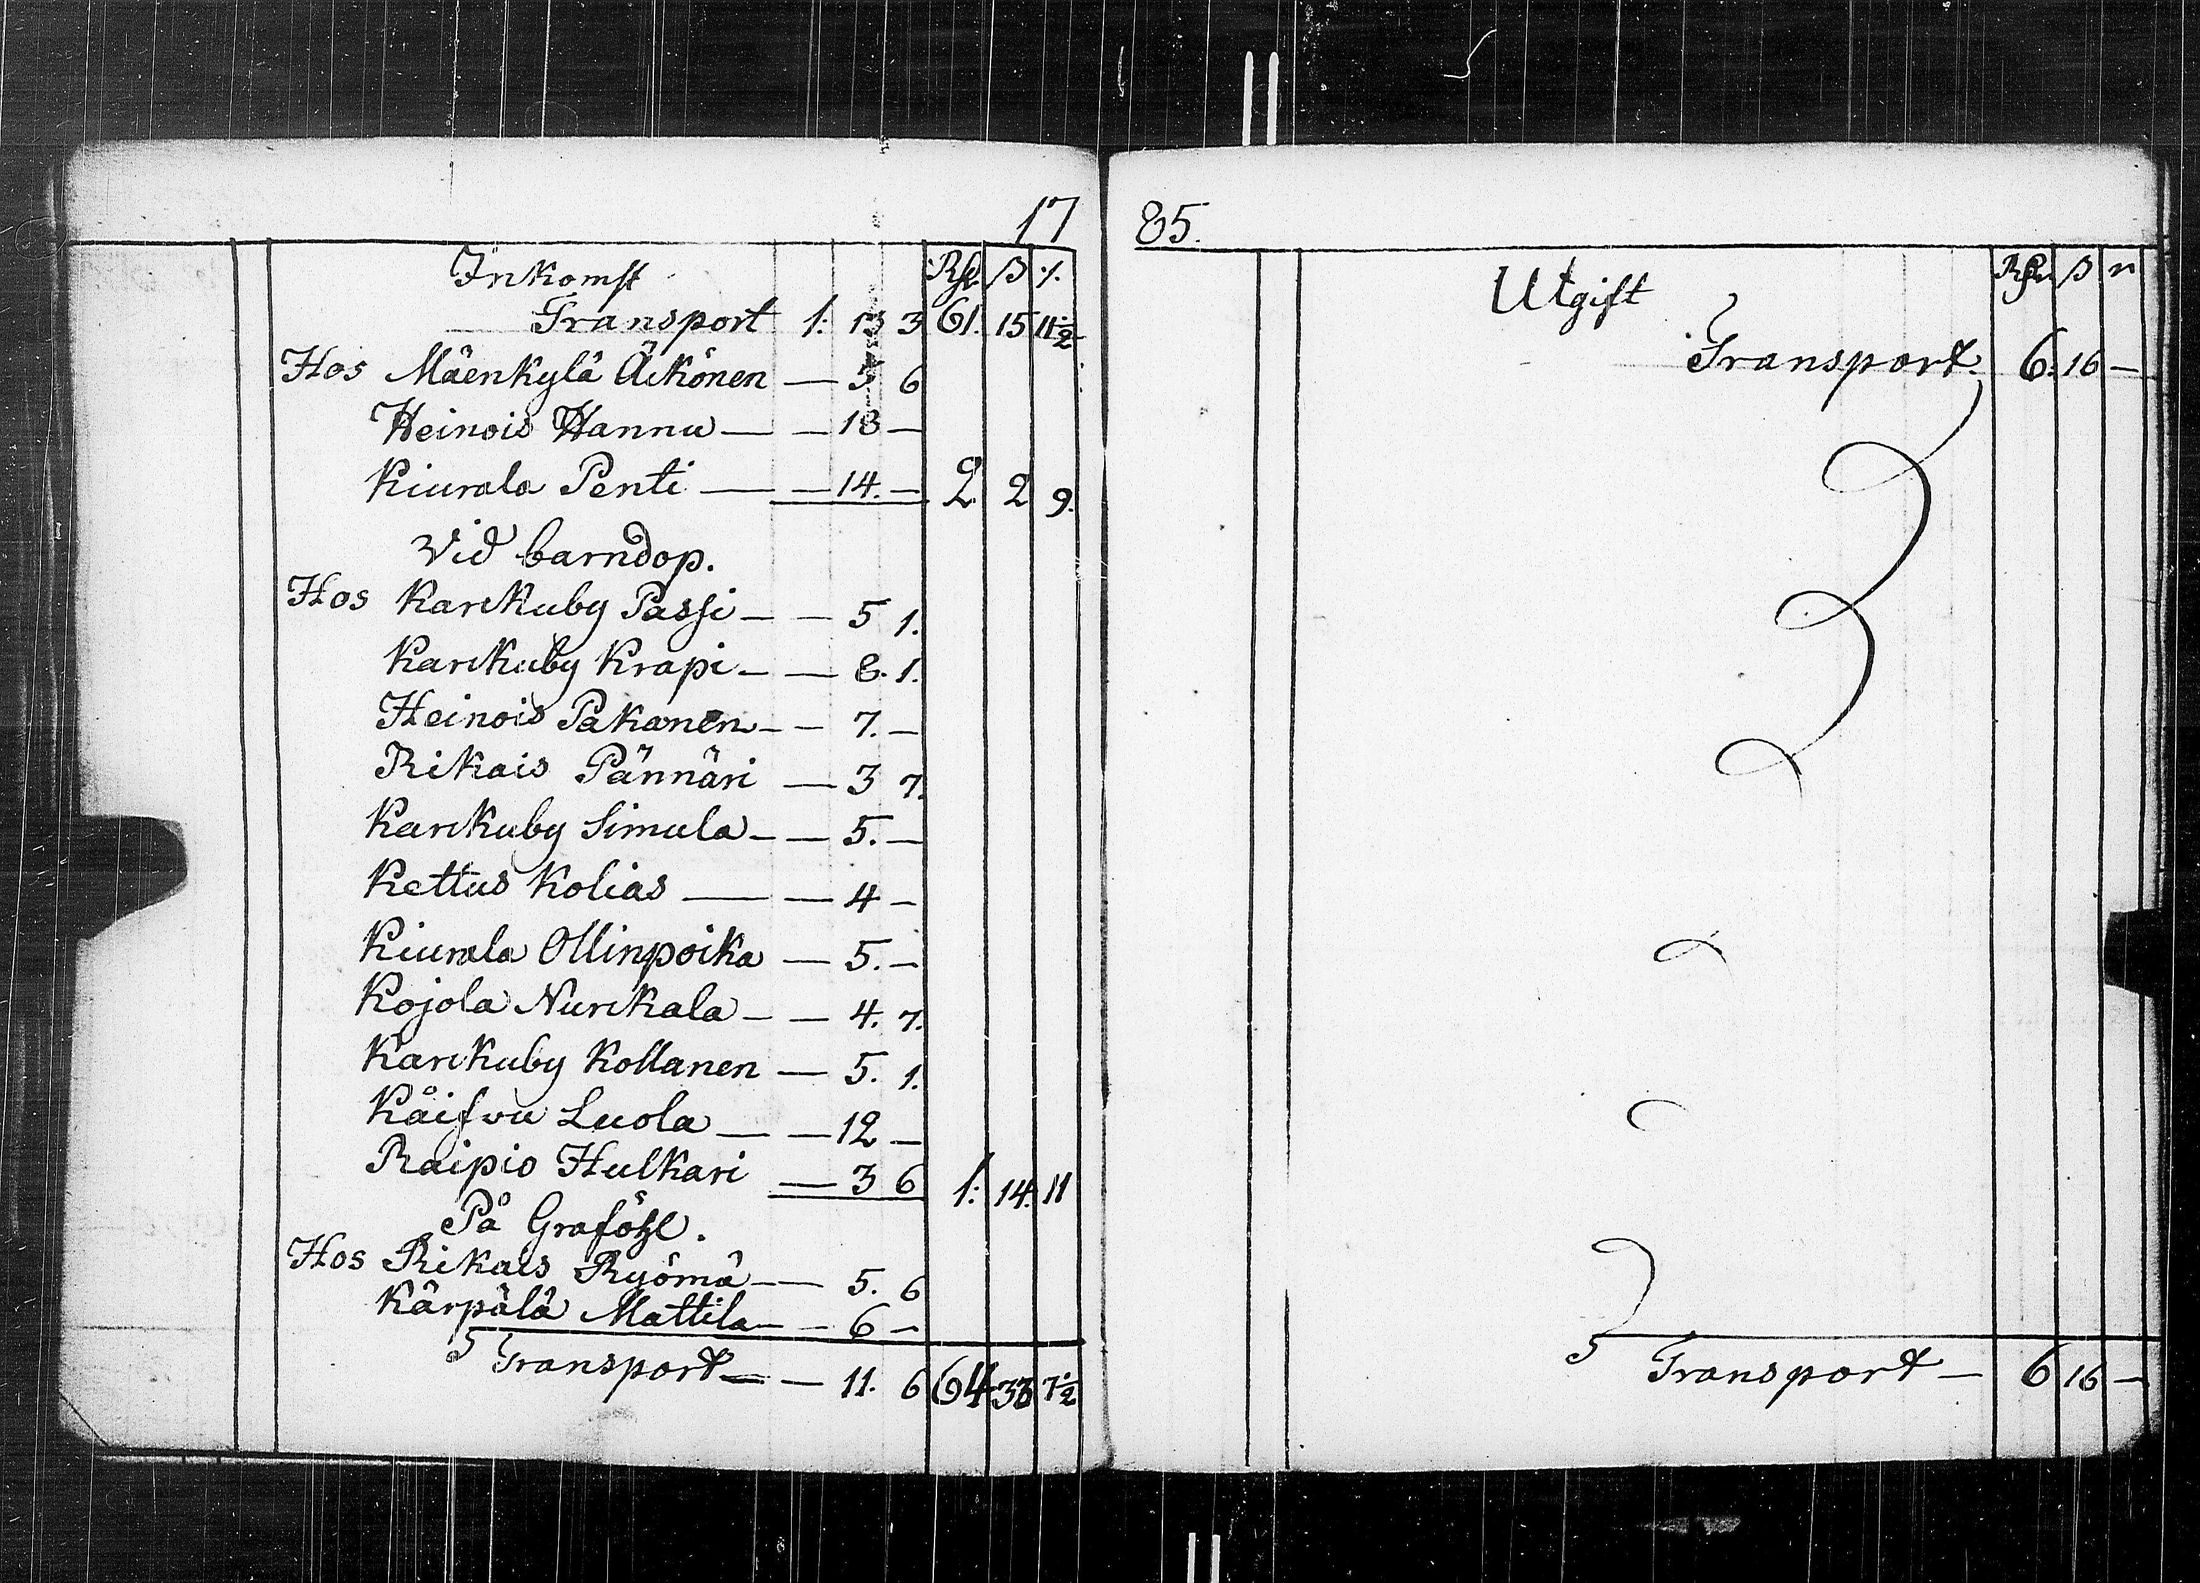 17
Inkomst Rsd. ß ./.
Transport 1: 13 3 61. 15 11½
Hos Mäenkylä Äikönen — 5 6
Heinois Hannu — — 18 —
Kiurala Penti — — 14. — 2. 2 9.
Vid barndop.
Hos Karkuby Passi — — 5 1.
Karkuby Krapi — — 8. 1.
Heinois Pakanen — — 7. —
Rikais Pännäri — 3 7.
Karkuby Simula — — 5. —
Kettus Kolias — — 4 —
Kiurala Ollinpoika — 5. —
Kojola Nurkala — — 4. 7.
Karkuby Kollanen — 5. 1.
Luola — — 12 —
Raipio Hulkari — 3 6 1: 14. 11
På Graföhl.
Hos Rikais Ryömä — — 5. 6
Kärpälä Mattila — — 6 —
Transport — — 11. 6 64 33 7½
85.
Utgift Rsd. ß n
Transport. 6: 16 —
Transport — 6 16 —